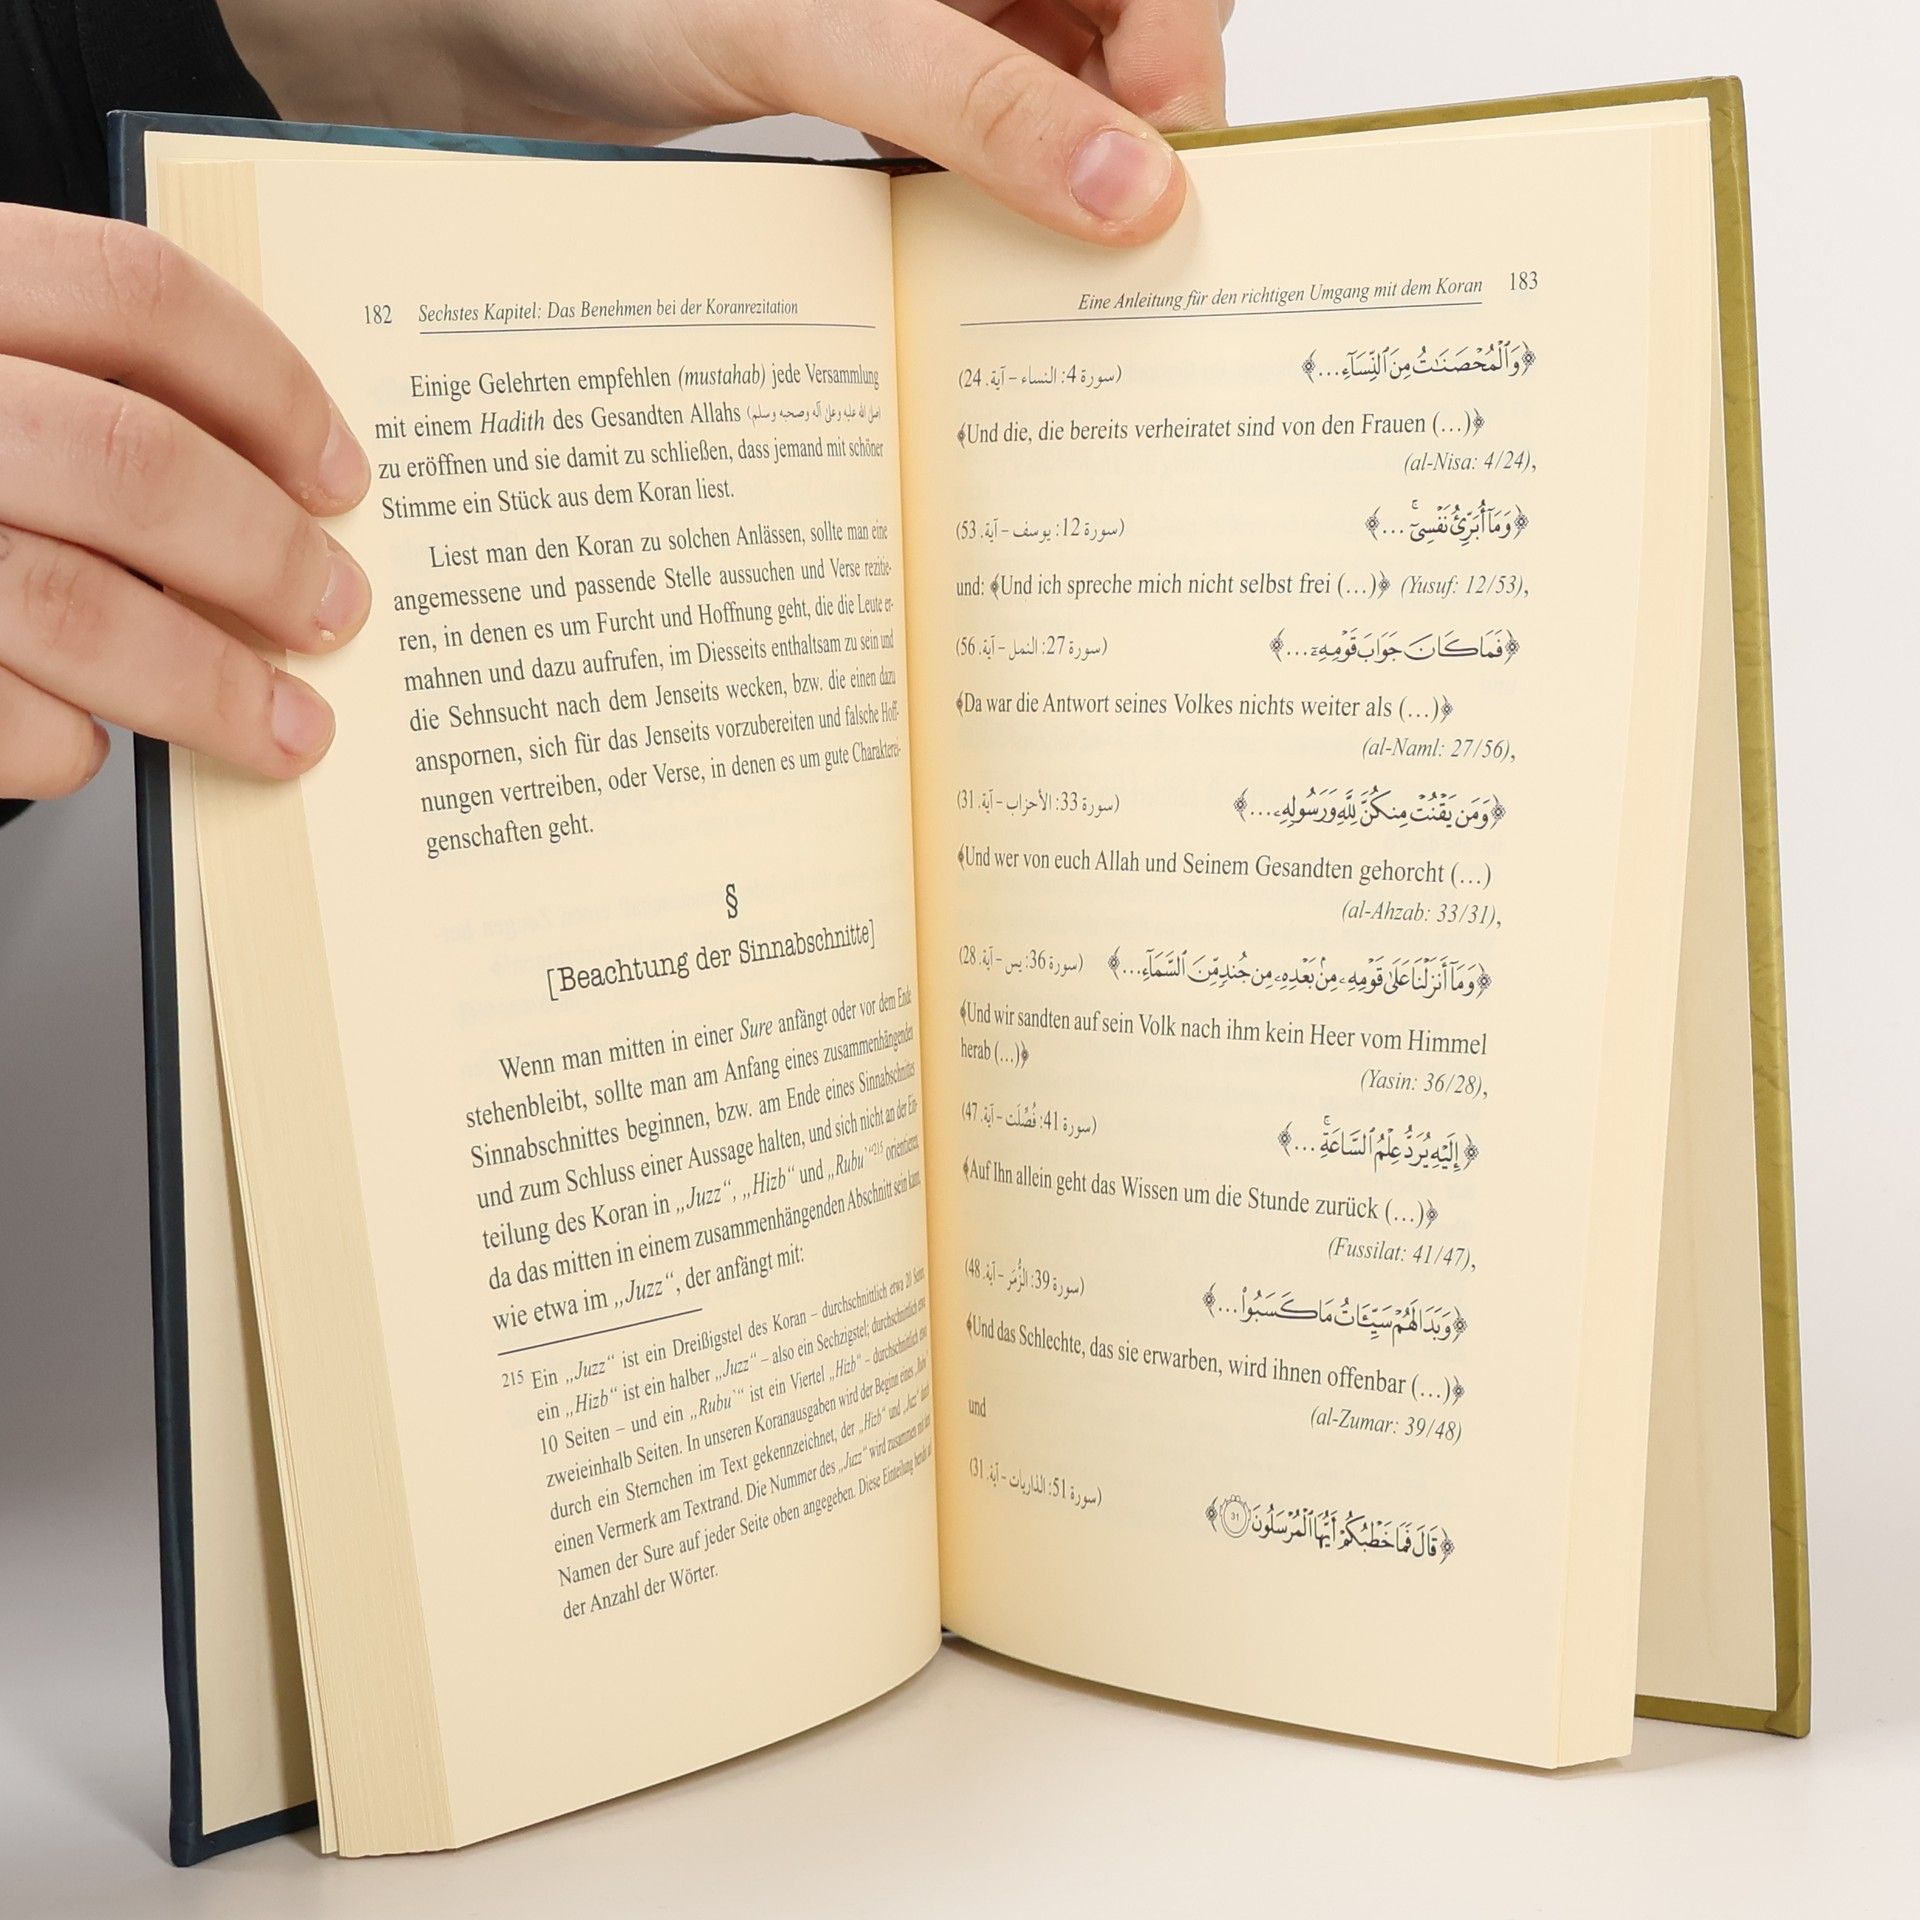 182 Sechstes Kapitel: Das Benehmen bei der Koranrezitation
Einige Gelehrten empfehlen (mustahab) jede Versammlung
mit einem Hadith des Gesandten Allahs (صلى الله عليه وعلى آله وصحبه وسلم)
zu eröffnen und sie damit zu schließen, dass jemand mit schöner
Stimme ein Stück aus dem Koran liest.
Liest man den Koran zu solchen Anlässen, sollte man eine
angemessene und passende Stelle aussuchen und Verse rezitie-
ren, in denen es um Furcht und Hoffnung geht, die die Leute er-
mahnen und dazu aufrufen, im Diesseits enthaltsam zu sein und
die Sehnsucht nach dem Jenseits wecken, bzw. die einen dazu
anspornen, sich für das Jenseits vorzubereiten und falsche Hoff-
nungen vertreiben, oder Verse, in denen es um gute Charakterei-
genschaften geht.
§
[Beachtung der Sinnabschnitte]
Wenn man mitten in einer Sure anfängt oder vor dem Ende
stehenbleibt, sollte man am Anfang eines zusammenhängenden
Sinnabschnittes beginnen, bzw. am Ende eines Sinnabschnittes
und zum Schluss einer Aussage halten, und sich nicht an der Ein-
teilung des Koran in „Juzz“, „Hizb“ und „Rubu`“215 orientieren,
da das mitten in einem zusammenhängenden Abschnitt sein kann,
wie etwa im „Juzz“, der anfängt mit:
215 Ein „Juzz“ ist ein Dreißigstel des Koran – durchschnittlich etwa 20 Seiten,
ein „Hizb“ ist ein halber „Juzz“ – also ein Sechzigstel; durchschnittlich etwa
10 Seiten – und ein „Rubu`“ ist ein Viertel „Hizb“ – durchschnittlich etwa
zweieinhalb Seiten. In unseren Koranausgaben wird der Beginn eines „Rubu`“
durch ein Sternchen im Text gekennzeichnet, der „Hizb“ und „Juzz“ durch
einen Vermerk am Textrand. Die Nummer des „Juzz“ wird zusammen mit dem
Namen der Sure auf jeder Seite oben angegeben. Diese Einteilung beruht auf
der Anzahl der Wörter.
Eine Anleitung für den richtigen Umgang mit dem Koran 183
﴿وَٱلْمُحْصَنَٰتُ مِنَ ٱلنِّسَآءِ...﴾ (سورة 4: النساء – آية. 24)
﴾Und die, die bereits verheiratet sind von den Frauen (…)﴿
(al-Nisa: 4/24),
﴿وَمَآ أُبَرِّئُ نَفْسِىٓ ۚ ...﴾ (سورة 12: يوسف – آية. 53)
und: ﴾Und ich spreche mich nicht selbst frei (…)﴿ (Yusuf: 12/53),
﴿فَمَا كَانَ جَوَابَ قَوْمِهِۦٓ...﴾ (سورة 27: النمل – آية. 56)
﴾Da war die Antwort seines Volkes nichts weiter als (…)﴿
(al-Naml: 27/56),
﴿وَمَن يَقْنُتْ مِنكُنَّ لِلَّهِ وَرَسُولِهِۦ...﴾ (سورة 33: الأحزاب – آية. 31)
﴾Und wer von euch Allah und Seinem Gesandten gehorcht (…)
(al-Ahzab: 33/31),
﴿وَمَآ أَنزَلْنَا عَلَىٰ قَوْمِهِۦ مِنۢ بَعْدِهِۦ مِن جُندٍ مِّنَ ٱلسَّمَآءِ...﴾ (سورة 36: يس – آية. 28)
﴾Und wir sandten auf sein Volk nach ihm kein Heer vom Himmel
herab (…)﴿
(Yasin: 36/28),
﴿إِلَيْهِ يُرَدُّ عِلْمُ ٱلسَّاعَةِ ۚ ...﴾ (سورة 41: فُصِّلَت – آية. 47)
﴾Auf Ihn allein geht das Wissen um die Stunde zurück (…)﴿
(Fussilat: 41/47),
﴿وَبَدَا لَهُمْ سَيِّـَٔاتُ مَا كَسَبُوا۟...﴾ (سورة 39: الزُّمَر – آية. 48)
﴾Und das Schlechte, das sie erwarben, wird ihnen offenbar (…)﴿
(al-Zumar: 39/48)
und
(سورة 51: الذاريات – آية. 31)
﴿قَالَ فَمَا خَطْبُكُمْ أَيُّهَا ٱلْمُرْسَلُونَ 31﴾